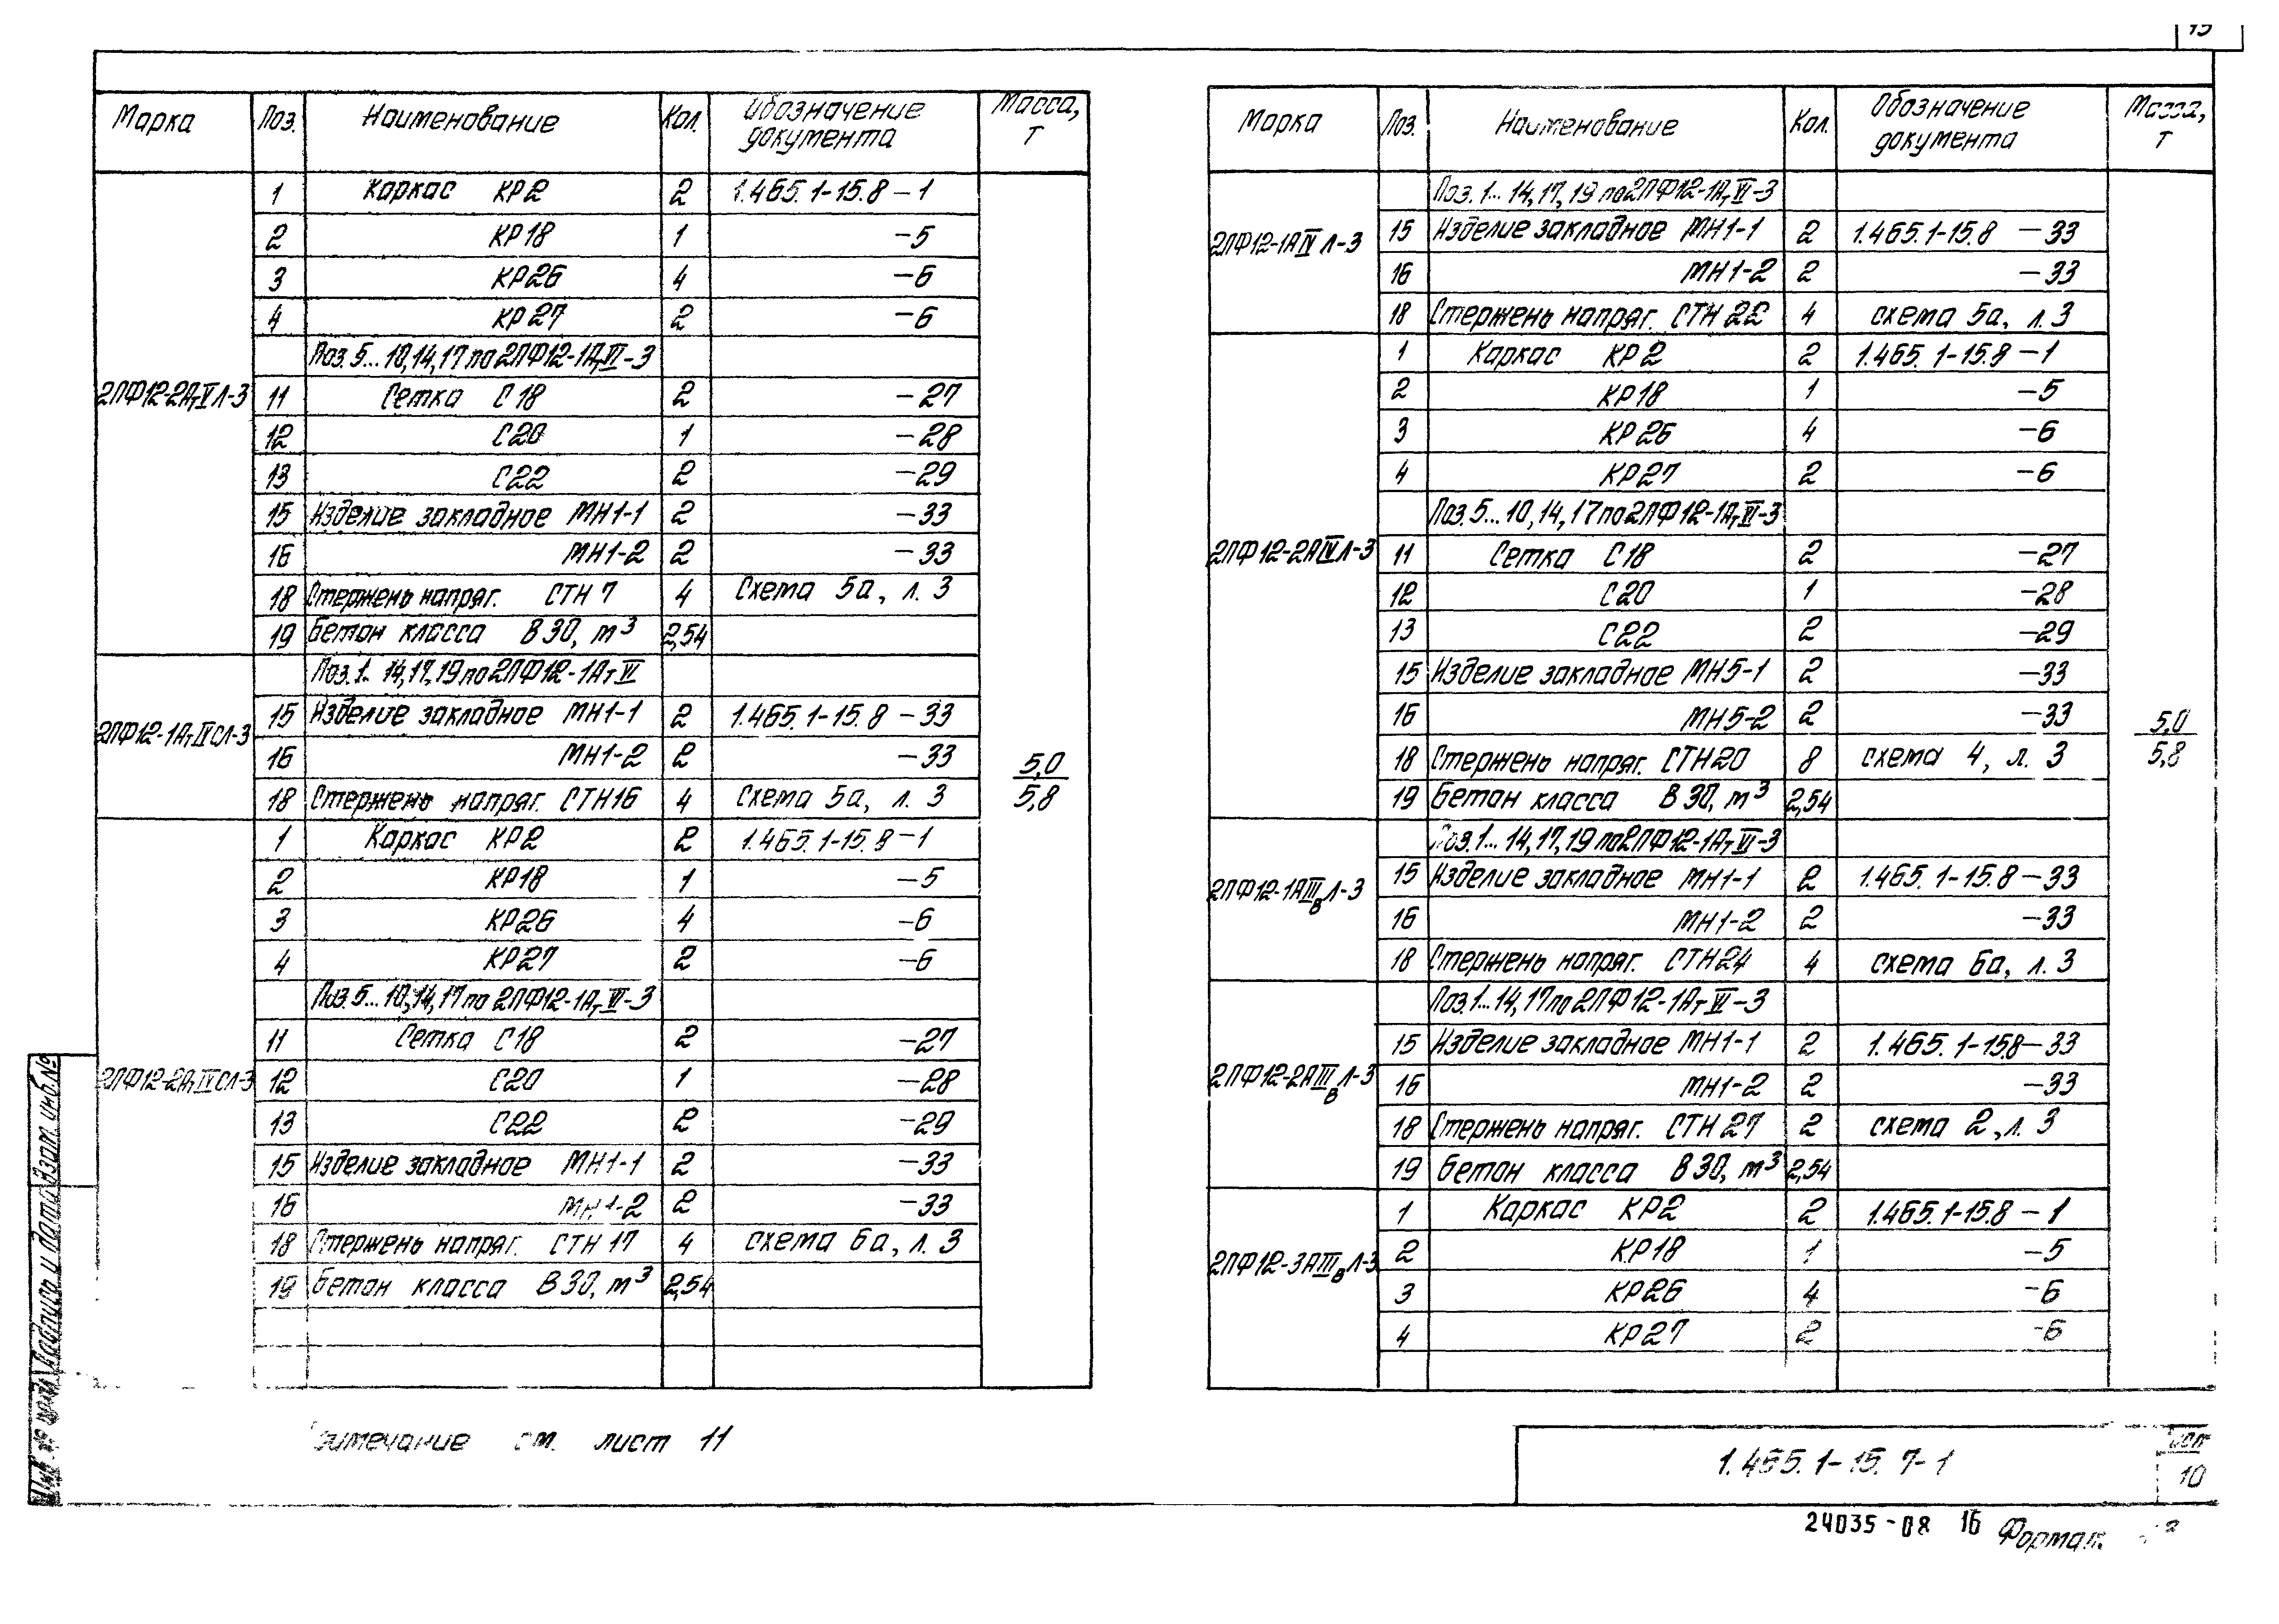 15
Марка Поз. Наименование Кол. Обозначение документа Масса, т
2ПФ12-2АтVЛ-3
1 Каркас КР2 2 1.465.1-15.8-1
2 КР18 1 -5
3 КР26 4 -6
4 КР27 2 -6
Поз. 5...10,14,17 по 2ПФ12-1АтVI-3
11 Сетка С18 2 -27
12 С20 1 -28
13 С22 2 -29
15 Изделие закладное МН1-1 2 -33
16 МН1-2 2 -33
18 Стержень напряг. СТН7 4 Схема 5а, л. 3
19 Бетон класса В30, м³ 2,54
2ПФ12-1АтIVСЛ-3
Поз. 1.. 14,17,19 по 2ПФ12-1АтVI
15 Изделие закладное МН1-1 2 1.465.1-15.8-33
16 МН1-2 2 -33
18 Стержень напряг. СТН16 4 Схема 5а, л. 3
5,0
5,8
2ПФ12-2АтIVСЛ-3
1 Каркас КР2 2 1.465.1-15.8-1
2 КР18 1 -5
3 КР26 4 -6
4 КР27 2 -6
Поз. 5...10,14,17 по 2ПФ12-1АтVI-3
11 Сетка С18 2 -27
12 С20 1 -28
13 С22 2 -29
15 Изделие закладное МН1-1 2 -33
16 МН1-2 2 -33
18 Стержень напряг. СТН17 4 схема 6а, л. 3
19 Бетон класса В30, м³ 2,54
Марка Поз. Наименование Кол. Обозначение документа Масса, т
2ПФ12-1АIVЛ-3
Поз. 1... 14,17,19 по 2ПФ12-1АтVI-3
15 Изделие закладное МН1-1 2 1.465.1-15.8-33
16 МН1-2 2 -33
18 Стержень напряг. СТН22 4 схема 5а, л. 3
2ПФ12-2АIVЛ-3
1 Каркас КР2 2 1.465.1-15.8-1
2 КР18 1 -5
3 КР26 4 -6
4 КР27 2 -6
Поз. 5...10,14,17 по 2ПФ12-1АтVI-3
11 Сетка С18 2 -27
12 С20 1 -28
13 С22 2 -29
15 Изделие закладное МН5-1 2 -33
16 МН5-2 2 -33
18 Стержень напряг. СТН20 8 схема 4, л. 3
19 Бетон класса В30, м³ 2,54
5,0
5,8
2ПФ12-1АIIIвЛ-3
Поз. 1... 14,17,19 по 2ПФ12-1АтVI-3
15 Изделие закладное МН1-1 2 1.465.1-15.8-33
16 МН1-2 2 -33
18 Стержень напряг. СТН24 4 схема 6а, л. 3
2ПФ12-2АIIIвЛ-3
Поз. 1...14,17 по 2ПФ12-1АтVI-3
15 Изделие закладное МН1-1 2 1.465.1-15.8-33
16 МН1-2 2 -33
18 Стержень напряг. СТН27 2 схема 2, л. 3
19 Бетон класса В30, м³ 2,54
2ПФ12-3АIIIвЛ-3
1 Каркас КР2 2 1.465.1-15.8-1
2 КР18 1 -5
3 КР26 4 -6
4 КР27 2 -6
Инв. № подл. Подпись и дата Взам. инв. №
Примечание см. лист 11
1.465.1-15.7-1
10
24035-08 16 Формат